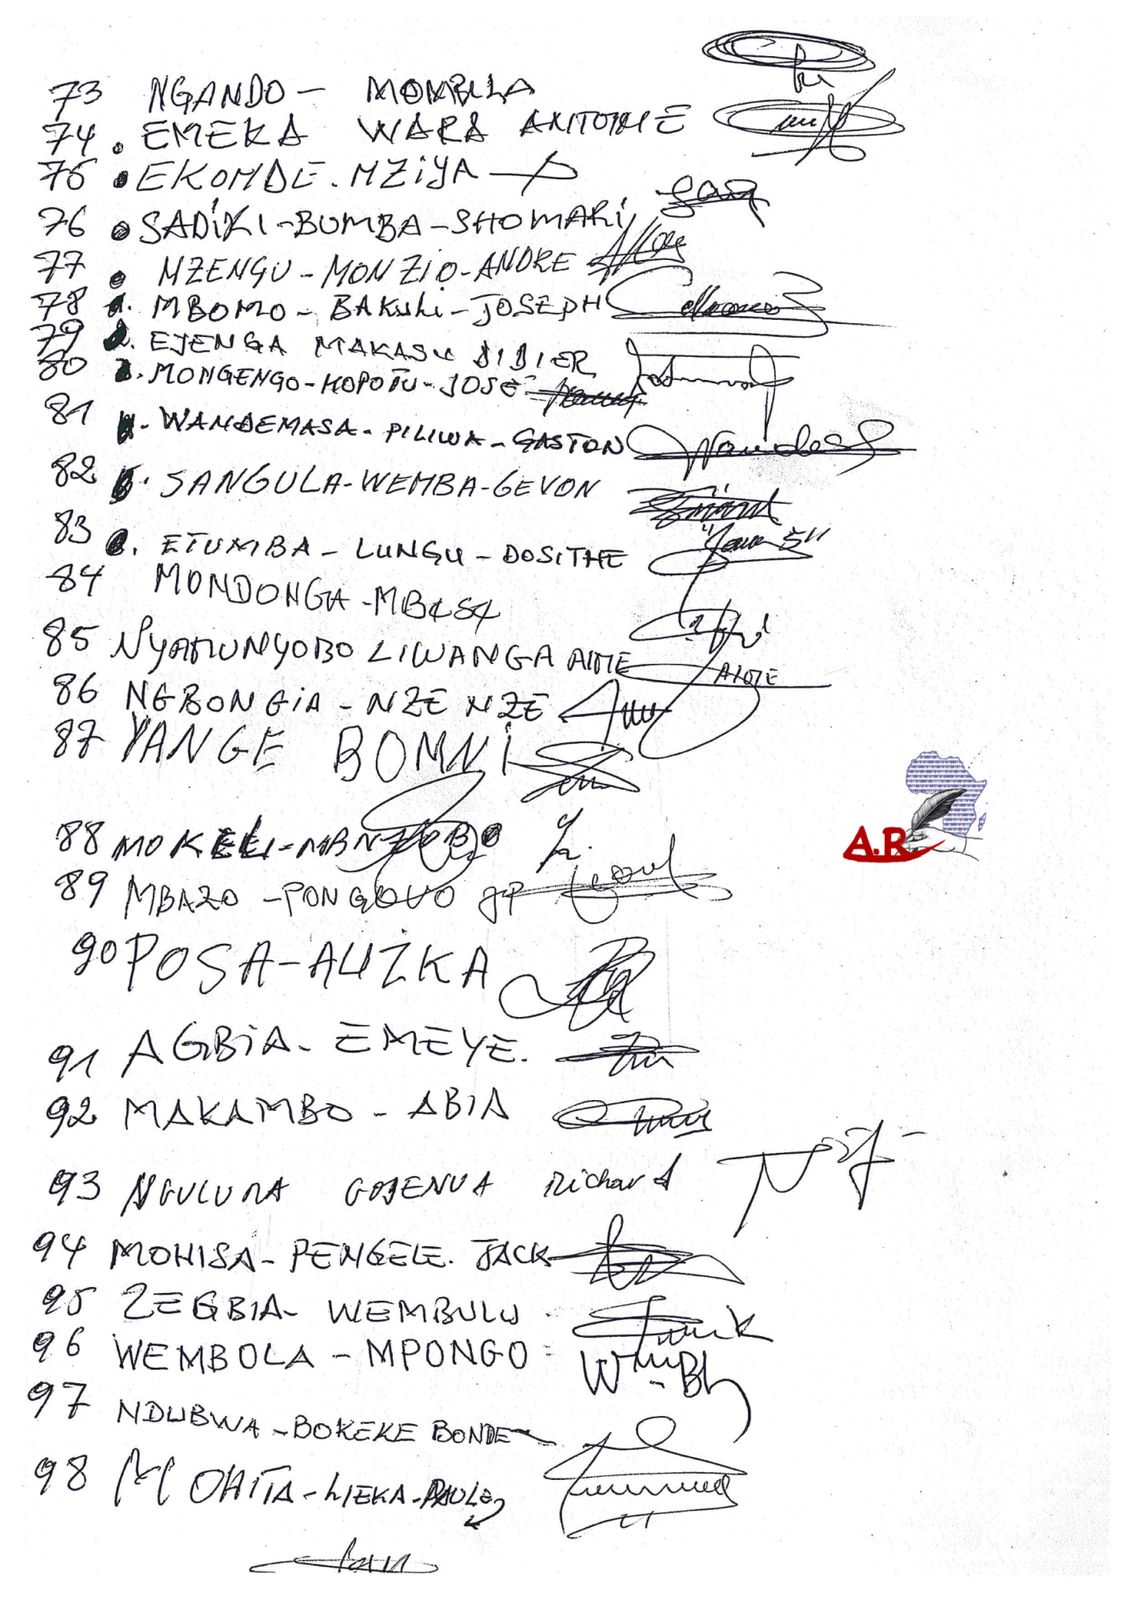 73 NGANDO - MOMBILA
74. EMEKA WARA ANTOINE
75. EKOMDE. MZIYA
76. SADIKI-BUMBA-SHOMARI
77. MZENGU-MONZIO-ANDRE
78. MBOMO-BAKULI-JOSEPH
79. EJENGA MAKASU DIDIER
80. MONGENGO-HOPOTU-JOSE
81. WANDEMASA-PILIWA-GASTON
82. SANGULA-WEMBA-GEVON
83. ETUMBA-LUNGU-DOSITHE
84 MONDONGA-
85 NYAMUNYOBO LIWANGA AIME
AIME
86 NGBONGIA-NZE NZE
87 YANGE BOMNI
88 MOKELI-
89 MBAZO-PONGOVO JP
90 POSA-ALIZKA
91 AGBIA-EMEYE.
92 MAKAMBO-ABIA
93 NGULUMA Richard
94 MOHISA-PENGELE. JACK
95 ZEGBIA-WEMBULU
96 WEMBOLA-MPONGO
97 NDUBWA-BOKEKE BONDE
98 MOHITA-LIEKA-PAUL
A.R